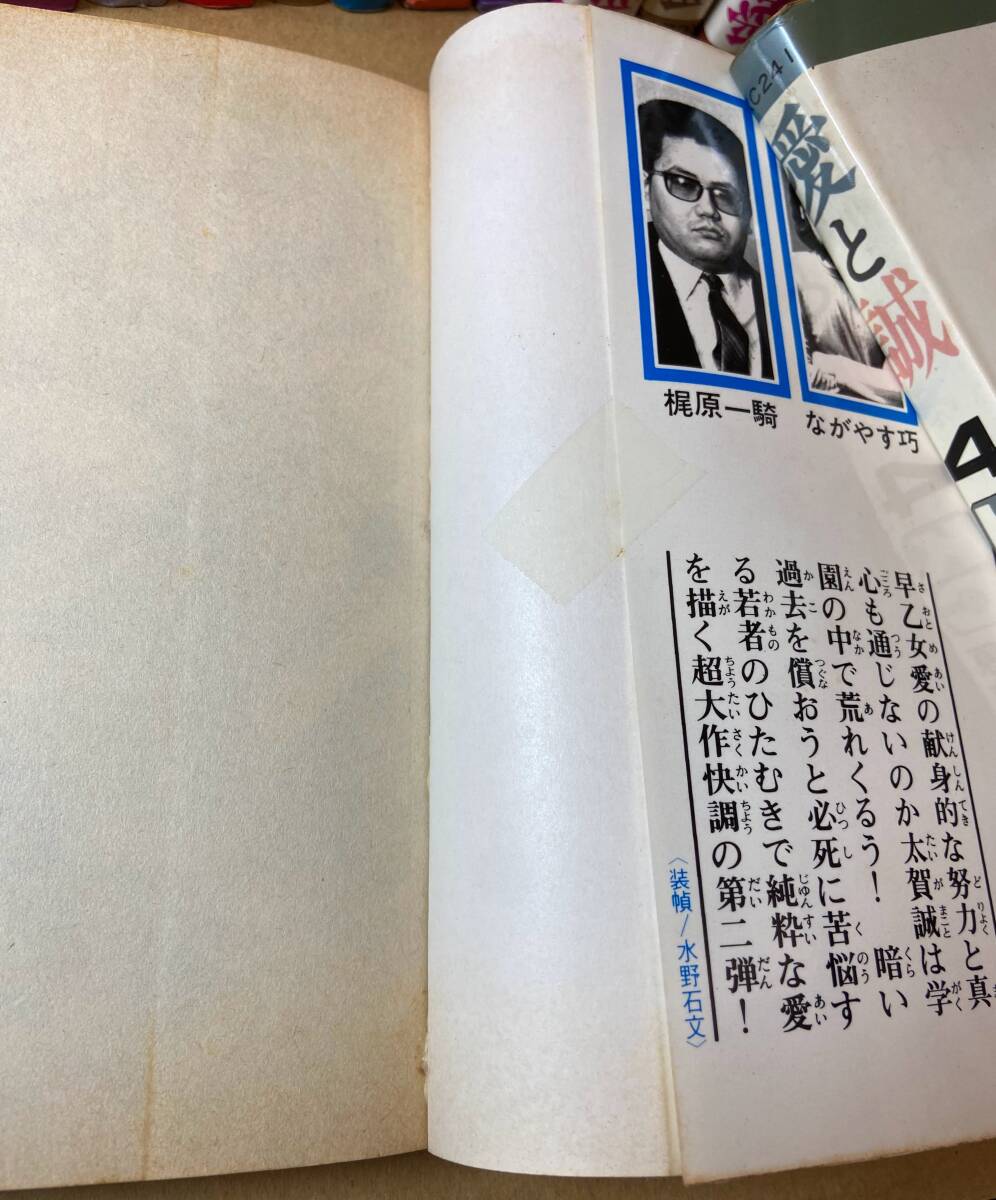 梶原一騎
ながやす巧
早乙女愛の献身的な努力と真
心も通じないのか太賀誠は学
園の中で荒れくるう! 暗い
過去を償おうと必死に苦悩す
る若者のひたむきで純粋な愛
を描く超大作快調の第二弾!
〈装幀/水野石文〉
C241
愛と誠
4